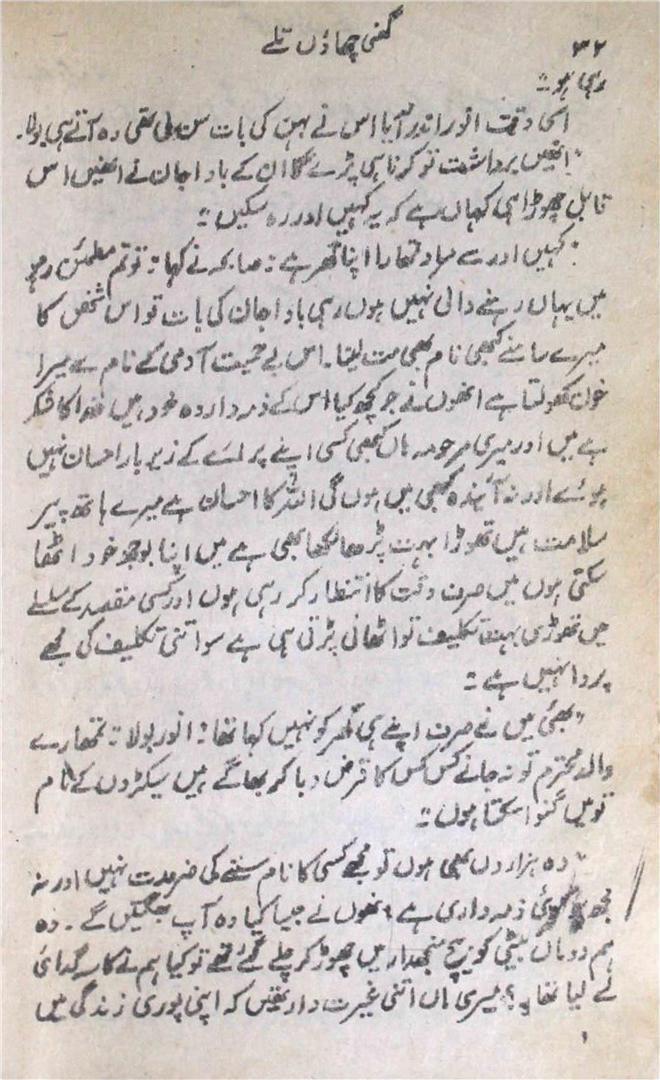 گھنی چھاؤں تلے
۳۲
رہی ہو :"
اسی وقت انور اندر آیا اس نے بہن کی بات سن لی تھی وہ آتے ہی بولا۔
"انھیں برداشت تو کرنا ہی پڑے گا ان کے باوا جان نے انھیں اس
قابل چھوڑا ہی کہاں ہے کہ یہ کہیں اور رہ سکیں :"
"کہیں اور سے مراد تمھارا اپنا گھر ہے" صابرہ نے کہا "تو تم مطمئن رہو
میں یہاں رہنے والی نہیں ہوں رہی باوا جان کی بات تو اس شخص کا
میرے سامنے کبھی نام بھی مت لینا۔ اس بے حمیت آدمی کے نام سے میرا
خون کھولتا ہے انھوں نے جو کچھ کیا اس کے ذمہ دار وہ خود ہیں خدا کا شکر
ہے میں اور میری مرحومہ ماں کبھی کسی اپنے پرائے کے زیر بار احسان نہیں
ہوئے اور نہ آئندہ کبھی میں ہوں گی اللہ کا احسان ہے میرے ہاتھ پیر
سلامت ہیں تھوڑا بہت پڑھا لکھا بھی ہے میں اپنا بوجھ خود اٹھا
سکتی ہوں میں صرف وقت کا انتظار کر رہی ہوں اور کسی مقصد کے سلسلے
میں تھوڑی بہت تکلیف تو اٹھانی پڑتی ہی ہے سو اتنی تکلیف کی مجھے
پروا نہیں ہے :"
"بھئی میں نے صرف اپنے ہی گھر کو نہیں کہا تھا" انور بولا "تمھارے
والد محترم تو نہ جانے کس کس کا قرض دبا کر بھاگے ہیں سیکڑوں کے نام
تو میں گنوا سکتا ہوں :"
"وہ ہزاروں بھی ہوں تو مجھے کسی کا نام سننے کی ضرورت نہیں اور نہ
مجھ پر کوئی ذمہ داری ہے انھوں نے جیسا کیا وہ آپ بھگتیں گے۔ وہ
ہم دو ماں بیٹی کو بیچ منجدار میں چھوڑ کر چلے گئے تھے تو کیا ہم نے کاسۂ گدائی
لے لیا تھا؟ میری ماں اتنی غیرت دار تھیں کہ اپنی پوری زندگی میں